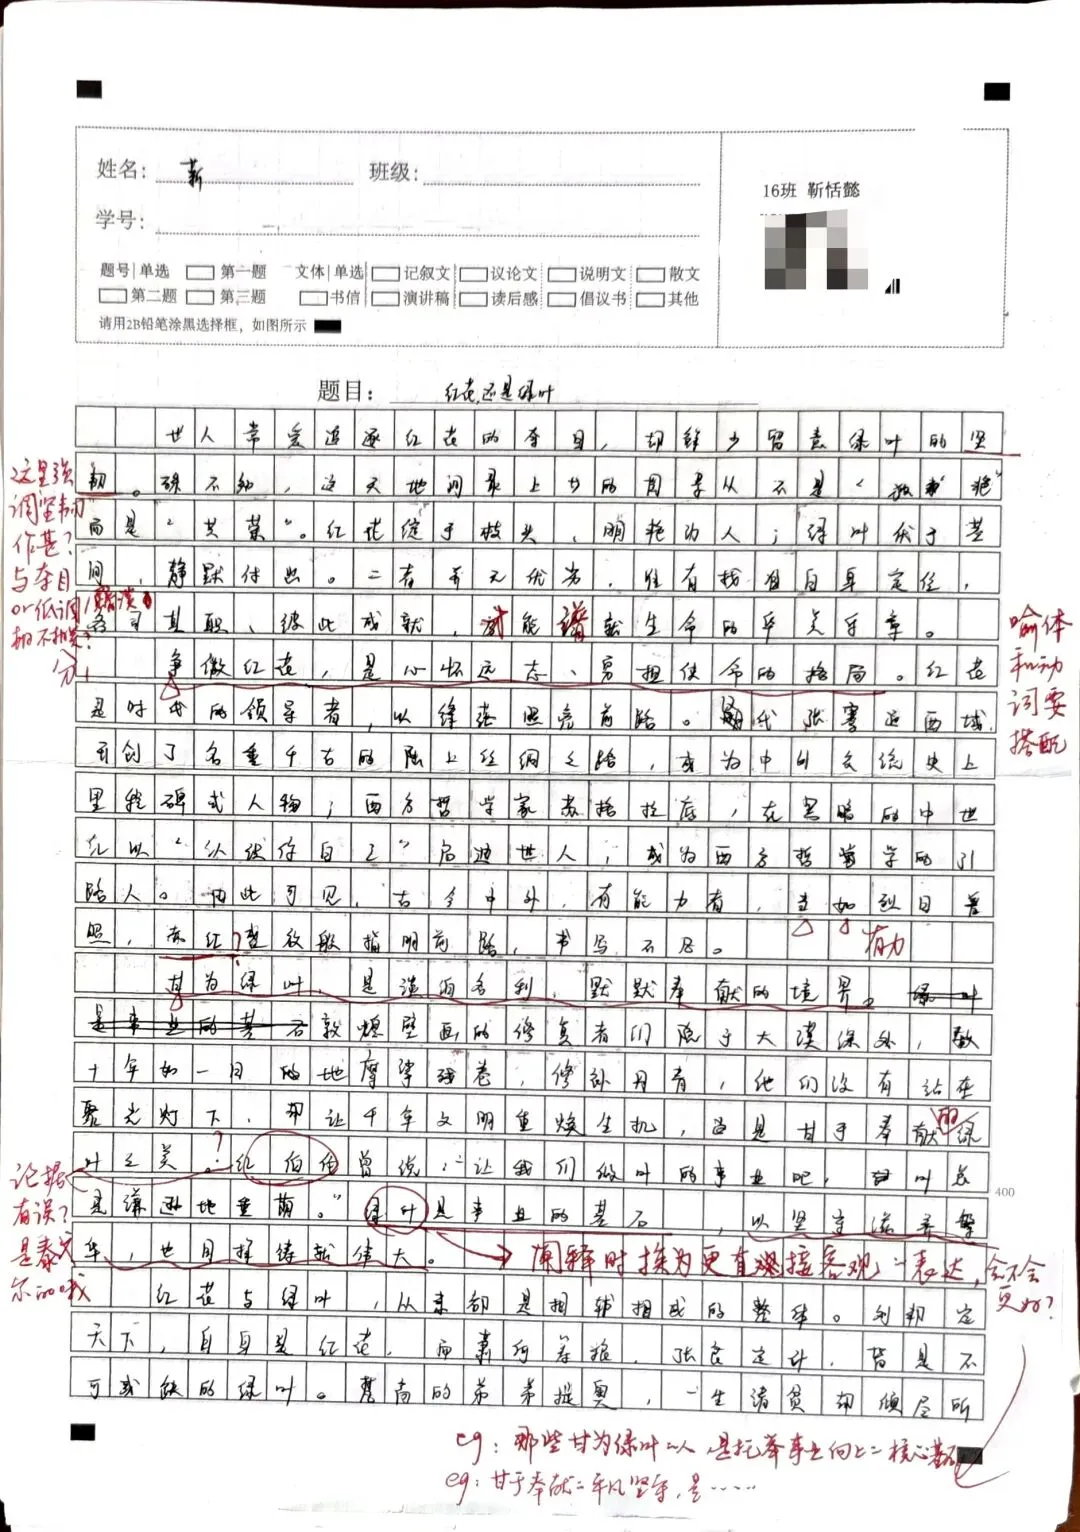 姓名：靳
班级：
16班 靳恬懿
学号：
题号 单选 第一题 文体 单选 记叙文 议论文 说明文 散文
第二题 第三题 书信 演讲稿 读后感 倡议书 其他
请用2B铅笔涂黑选择框，如图所示
题目：红花还是绿叶
世人常爱追逐红花的夺目，却鲜少留意绿叶的坚
韧。殊不知，这天地间最上的图景从不是“独艳”
而是“共荣”。红花绽于枝头，明艳动人；绿叶伏于茎
间，静默付出。二者并无优劣，唯有找准自身定位，
各司其职、彼此成就，才能谱就生命的华美乐章。
争做红花，是心怀远志、勇担使命的格局。红花
是时代的领导者，以绛造照亮前路。汉代张骞通西域
开创了名垂千古的陆上丝绸之路，成为中外交流史上
里程碑式人物；西方哲学家苏格拉底，在黑暗的中世
纪以“认识你自己”启迪世人，成为西方哲学的引
路人。由此可见，古今中外，有能力者，当如烈日普
照，亦红花绽放般指明前路，书写不凡。
甘为绿叶，是淡泊名利、默默奉献的境界。绿叶
是事业的基石敦煌壁画的修复者们隐于大漠深处，数
十年如一日的地摩挲残卷，修补丹青，他们没有站在
聚光灯下，却让千年文明重焕生机，当是甘于奉献的绿
叶之美。红伯伯曾说：“让我们做叶的事业吧，叶总
是谦逊地垂荫。”绿叶是事业的基石，以坚守滋养繁
400
华，也用择铸就伟大。
红花与绿叶，从来都是相辅相成的整体。刘邦定
天下，自身是红花，而萧何筹粮，张良定计，皆是不
可或缺的绿叶。梵高的弟弟提奥，一生清贫却倾尽所
这里强
调坚韧
作甚？
与夺目
or低调
喻体
和动
词要
搭配
有力
论据
有误？
是泰戈
尔的哦
阐释时换为更直观接客观一表达，会不会
更好？
eg：那些甘为绿叶一人 是托举事业向上一核心基石
eg：甘于奉献一平凡坚守，是……